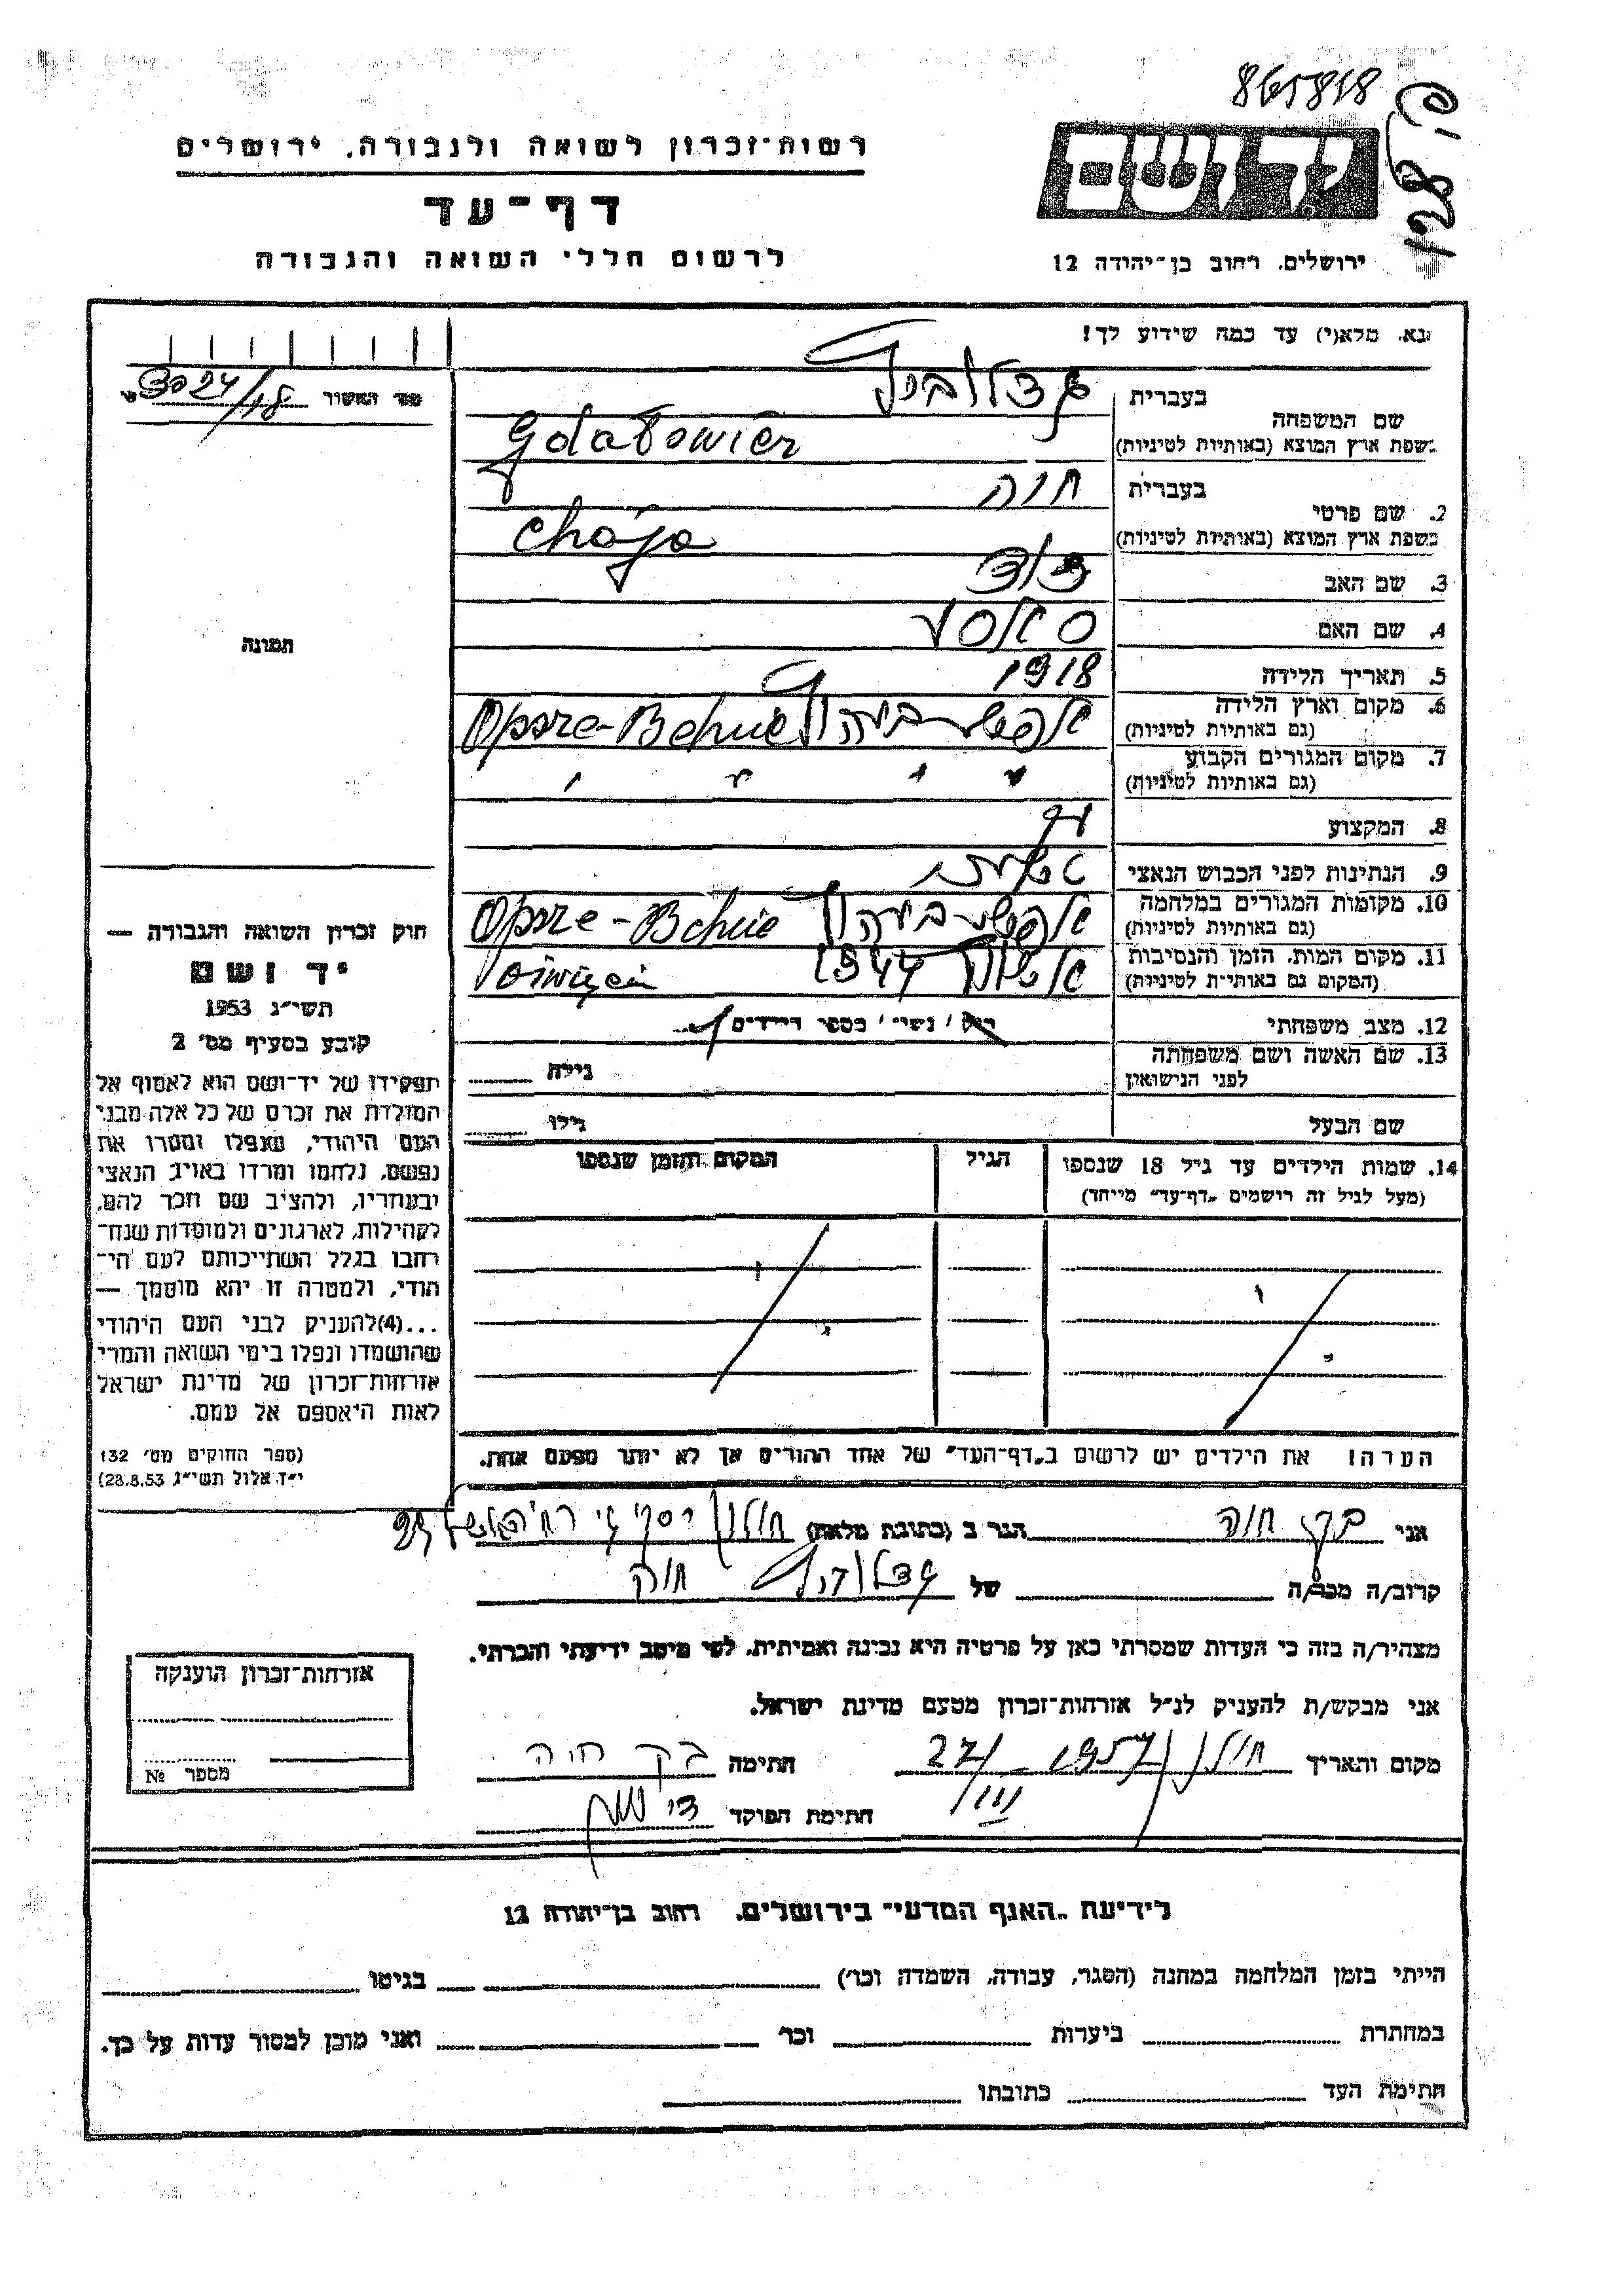 865818
רשות־זכרון לשואה ולגבורה. ירושלים
דף־עד
לרשום חללי השואה והגבורה
יד ושם
ירושלים. רחוב בן־יהודה 12
נא. מלא(י) עד כמה שידוע לך!
מס׳ האשור
בעברית
שם המשפחה
בשפת ארץ המוצא (באותיות לטיניות)
בעברית חוה
2. שם פרטי
בשפת ארץ המוצא (באותיות לטיניות) Chaja
3. שם האב
4. שם האם
5. תאריך הלידה 1918
6. מקום וארץ הלידה
(גם באותיות לטיניות)
7. מקום המגורים הקבוע
(גם באותיות לטיניות)
8. המקצוע
9. הנתינות לפני הכבוש הנאצי
10. מקומות המגורים במלחמה
(גם באותיות לטיניות)
11. מקום המות. הזמן והנסיבות 1944
(המקום גם באותיות לטיניות)
12. מצב משפחתי
13. שם האשה ושם משפחתה גילה
לפני הנישואין
שם הבעל גילו
14. שמות הילדים עד גיל 18 שנספו הגיל המקום והזמן שנספו
(מעל לגיל זה רושמים „דף־עד״ מייחד)
הערה! את הילדים יש לרשום ב„דף־העד״ של אחד ההורים אך לא יותר מפעם אחת.
תמונה
חוק זכרון השואה והגבורה —
יד ושם
תשי״ג 1953
קובע בסעיף מס׳ 2
תפקידו של יד־ושם הוא לאסוף אל
המולדת את זכרם של כל אלה מבני
העם היהודי, שנפלו ומסרו את
נפשם, נלחמו ומרדו באויב הנאצי
ובעוזריו, ולהציב שם וזכר להם,
לקהילות, לארגונים ולמוסדות שנח־
רבו בגלל השתייכותם לעם הי־
הודי, ולמטרה זו יהא מוסמך —
...(4)להעניק לבני העם היהודי
שהושמדו ונפלו בימי השואה והמרי
אזרחות־זכרון של מדינת ישראל
לאות היאספם אל עמם.
(ספר החוקים מס׳ 132
י״ז אלול תשי״ג 28.8.53)
אני בקר חוה הגר ב (כתובת מלאה) חולון
קרוב/ה מכר/ה של חוה
מצהיר/ה בזה כי העדות שמסרתי כאן על פרטיה היא נכונה ואמיתית. לפי מיטב ידיעתי והכרתי.
אני מבקש/ת להעניק לנ״ל אזרחות־זכרון מטעם מדינת ישראל.
מקום ותאריך חולון 27/III 1957 חתימה בקר חוה
חתימת הפוקד
אזרחות־זכרון הוענקה
מספר №
לידיעת „האגף המדעי״ בירושלים. רחוב בן־יהודה 12
הייתי בזמן המלחמה במחנה (הסגר, עבודה, השמדה וכו׳) בגיטו
במחתרת ביערות וכו׳ ואני מוכן למסור עדות על כך.
חתימת העד כתובתו